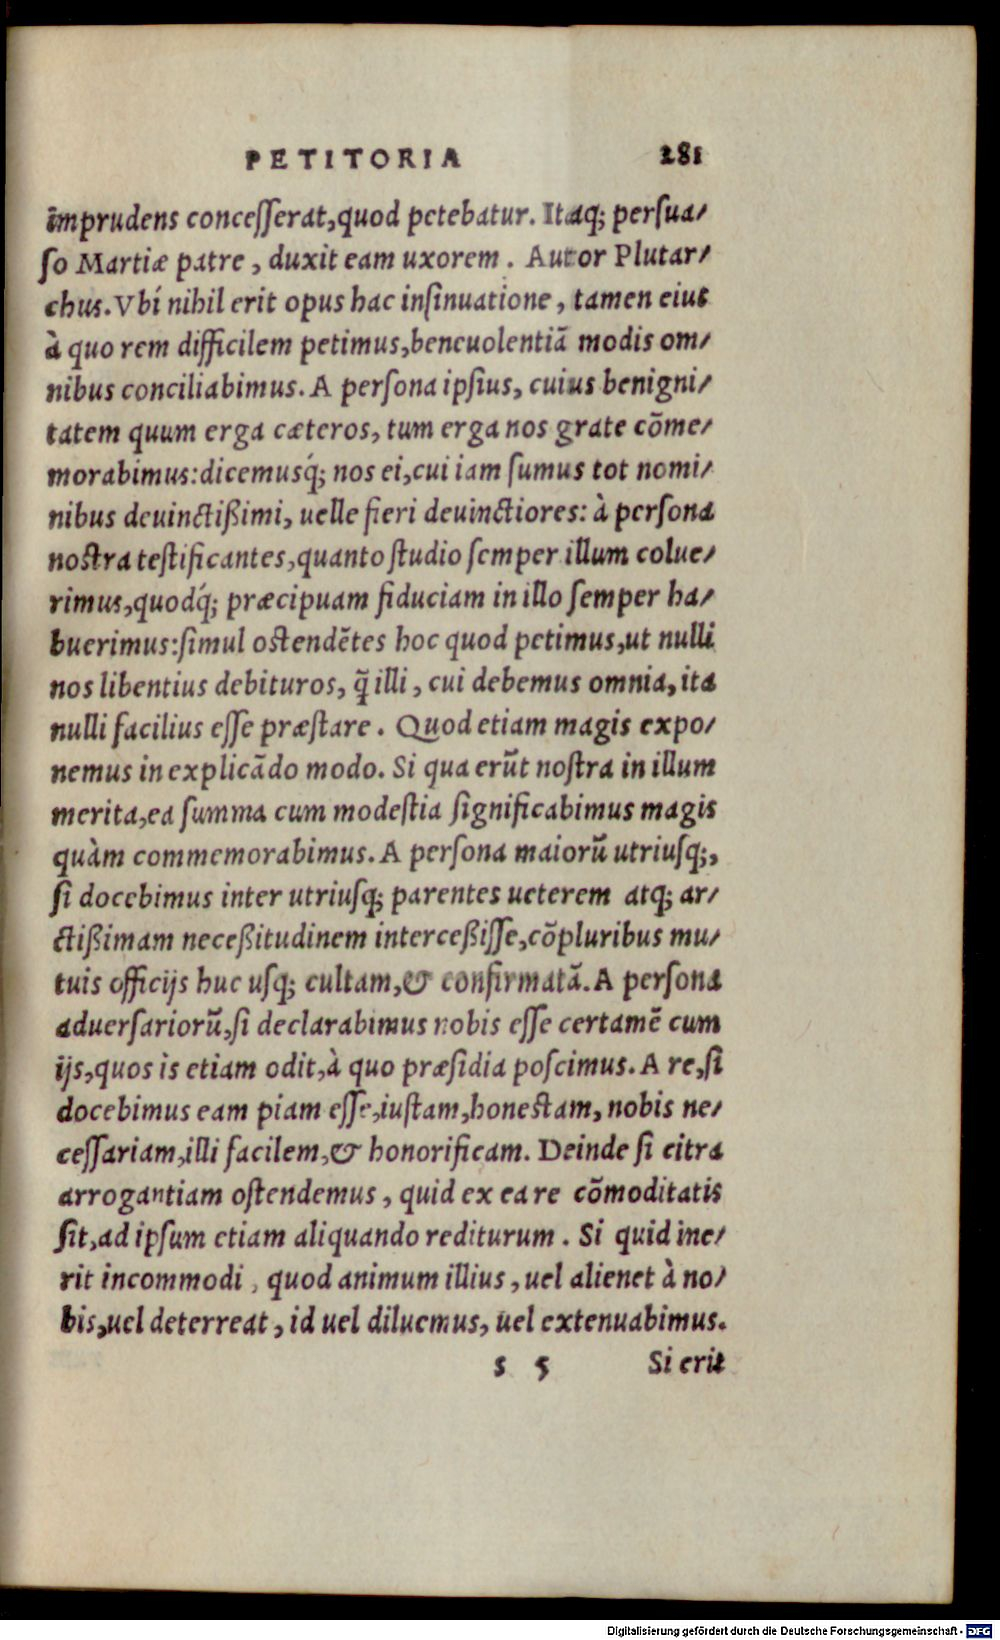 PETITORIA 281
imprudens concesſerat, quod petebatur. Itaq; perſua/
ſo Martiæ patre, duxit eam uxorem. Autor Plutar/
chus. Vbí nihil erit opus hac inſinuatione, tamen eius
à quo rem difficilem petimus, beneuolentiã modis om/
nibus conciliabimus. A perſona ipſius, cuius benigni/
tatem quum erga cæteros, tum erga nos grate cõme/
morabimus: dicemusq́; nos ei, cui iam ſumus tot nomi/
nibus deuinctißimi, uelle fieri deuinctiores: à perſona
noſtra teſtificantes, quanto ſtudio ſemper illum colue/
rimus, quodq́; præcipuam fiduciam in illo ſemper ha/
buerimus: ſimul oſtendẽtes hoc quod petimus, ut nulli
nos libentius debituros, q̃ illi, cui debemus omnia, ita
nulli facilius eſſe præſtare. Quod etiam magis expo/
nemus in explicãdo modo. Si qua erũt noſtra in illum
merita, ea ſumma cum modeſtia ſignificabimus magis
quàm commemorabimus. A perſona maiorũ utriuſq;,
ſi docebimus inter utriuſq; parentes ueterem atq; ar/
ctißimam neceßitudinem interceßiſſe, cõpluribus mu/
tuis officijs huc uſq; cultam, & confirmatã. A perſona
aduerſariorũ, ſi declarabimus nobis eſſe certamẽ cum
ijs, quos is etiam odit, à quo præſidia poſcimus. A re, ſi
docebimus eam piam eſſe, iuſtam, honeſtam, nobis ne/
ceſſariam, illi facilem, & honorificam. Deinde ſi citra
arrogantiam oſtendemus, quid ex ea re cõmoditatis
ſit, ad ipſum etiam aliquando rediturum. Si quid ine/
rit incommodi, quod animum illius, uel alienet à no/
bis, uel deterreat, id uel diluemus, uel extenuabimus.
s 5 Si erit
Digitalisierung gefördert durch die Deutsche Forschungsgemeinschaft - DFG